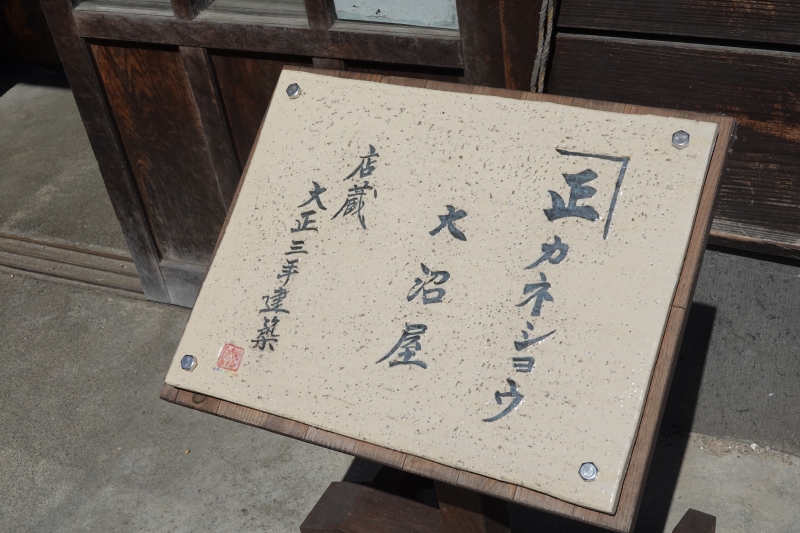 正
カネショウ
大沼屋
店蔵
大正三年建築